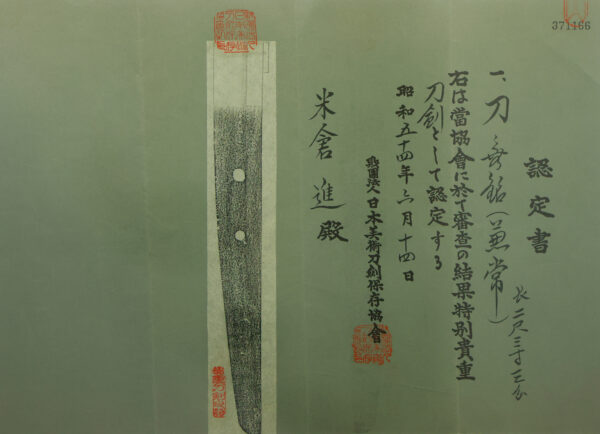 371166
認定書
一、刀 無銘(兼常)
長二尺三寸三分
右は當協會に於て審査の結果特別貴重
刀劍として認定する
昭和五十四年六月十四日
財團法人日本美術刀劍保存協會
米倉進殿